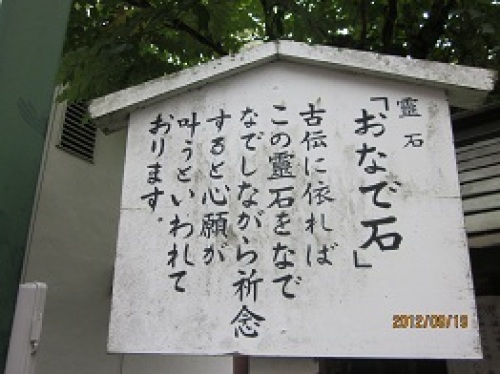 靈石
「おなで石」
古伝に依れば
この靈石をなで
なでしながら祈念
すると心願が
叶うといわれて
おります。
2012/09/19